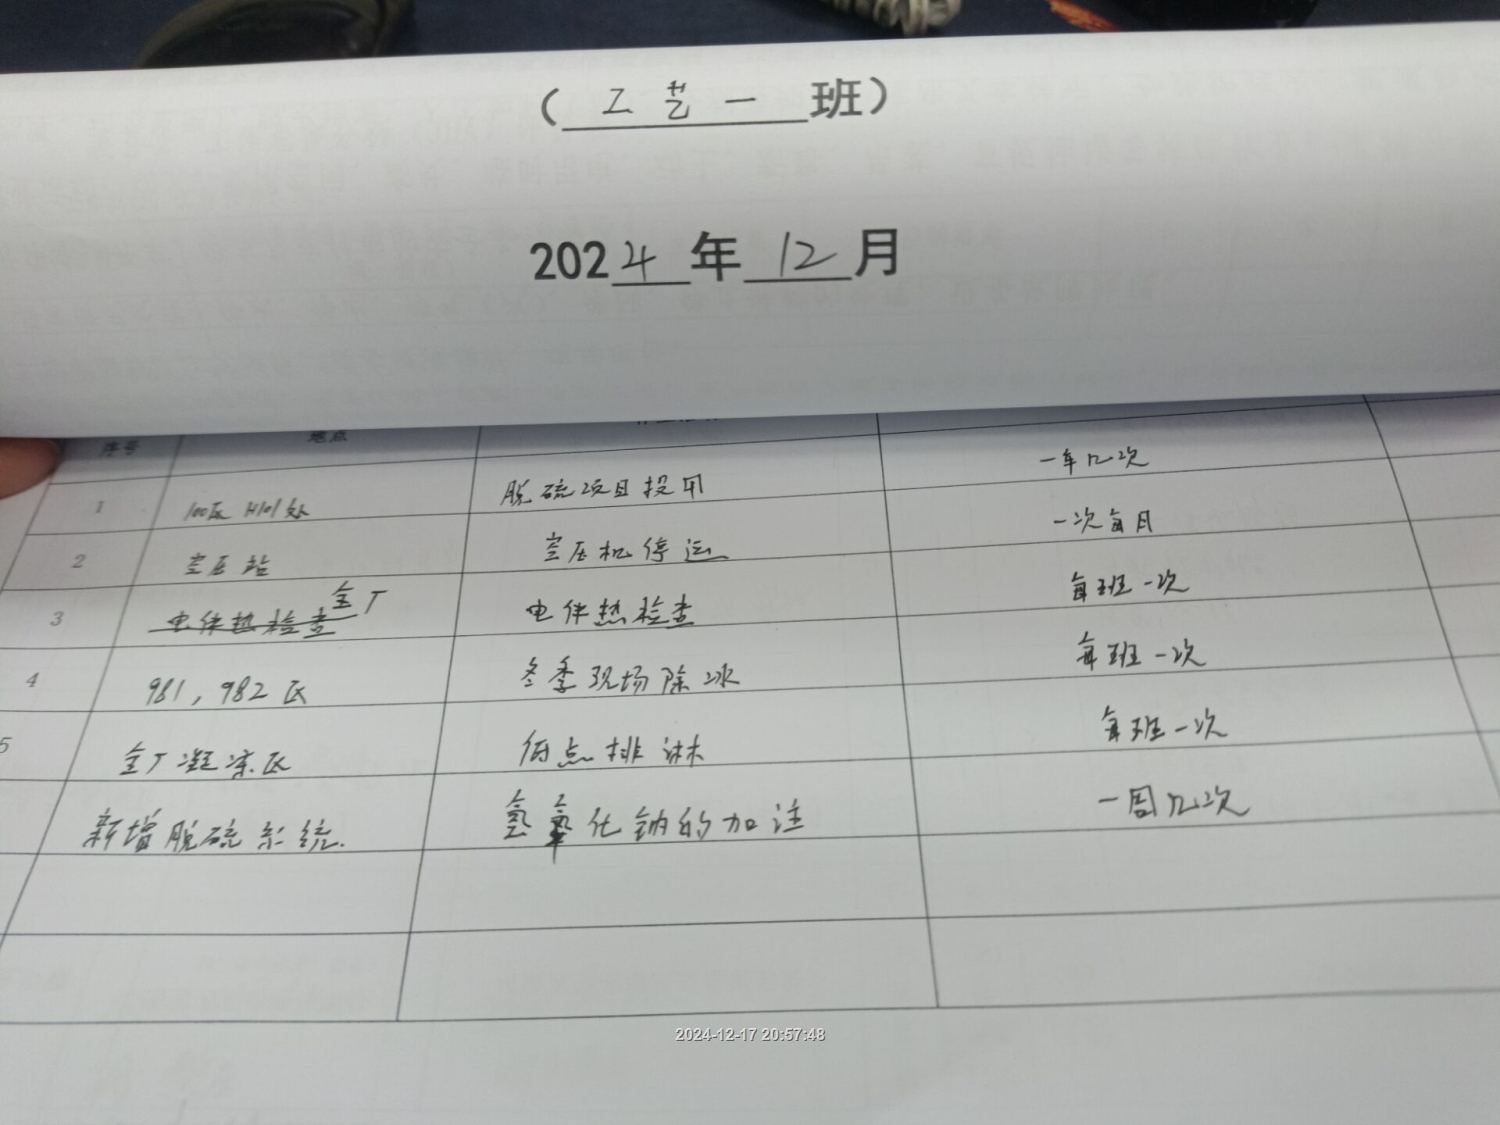 （工艺一班）
2024年12月
序号 地点
1 100区 H101处 脱硫项目投用 一年几次
2 空压站 空压机停运 一次每月
3 电伴热检查 全厂 电伴热检查 每班一次
4 981，982区 冬季现场除冰 每班一次
5 全厂凝凉区 低点排淋 每班一次
新增脱硫系统. 氢氧化钠的加注 一周几次
2024-12-17 20:57:48